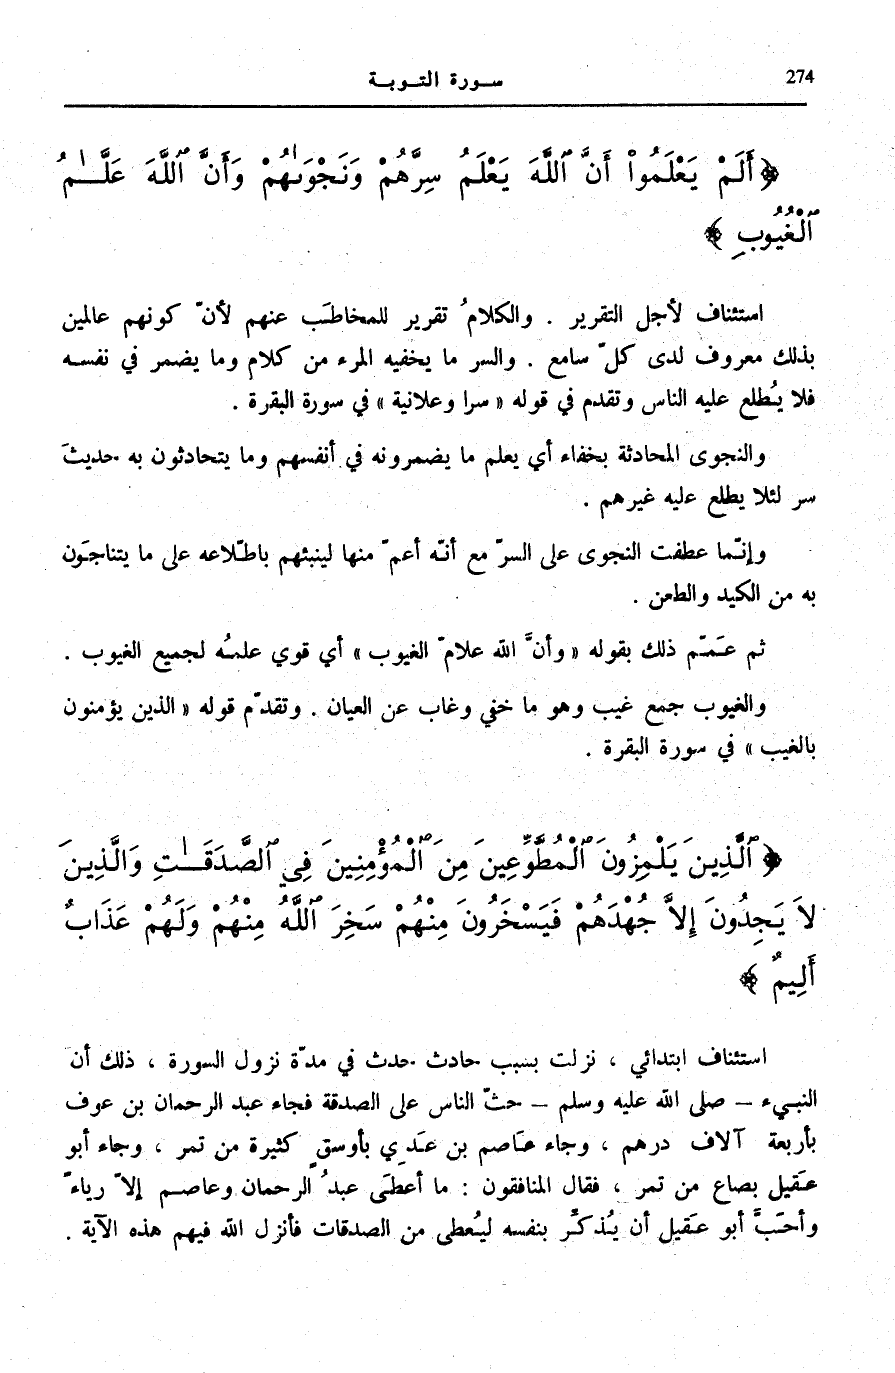 سورة التوبة 274
﴿أَلَمْ يَعْلَمُواْ أَنَّ ٱللَّهَ يَعْلَمُ سِرَّهُمْ وَنَجْوَىٰهُمْ وَأَنَّ ٱللَّهَ عَلَّـٰـمُ
ٱلْغُيُوبِ ﴾
استئناف لأجل التقرير . والكلامُ تقرير للمخاطَب عنهم لأنّ كونهم عالمين
بذلك معروف لدى كلّ سامع . والسر ما يخفيه المرء من كلام وما يضمر في نفسه
فلا يُطلع عليه الناس وتقدم في قوله « سرا وعلانية » في سورة البقرة .
والنجوى المحادثة بخفاء أي يعلم ما يضمرونه في أنفسهم وما يتحادثون به حديثَ
سر لئلا يطلع عليه غيرهم .
وإنّما عطفت النجوى على السرّ مع أنّه أعمّ منها لينبئهم باطّلاعه على ما يتناجَون
به من الكيد والطعن .
ثم عَمّم ذلك بقوله « وأنَّ الله علامّ الغيوب » أي قوي علمُه لجميع الغيوب .
والغيوب جمع غيب وهو ما خفي وغاب عن العيان . وتقدّم قوله « الذين يؤمنون
بالغيب » في سورة البقرة .
﴿ ٱلَّذِينَ يَلْمِزُونَ ٱلْمُطَّوِّعِينَ مِنَ ٱلْمُؤْمِنِينَ فِي ٱلصَّدَقَـٰـتِ وَالَّذِينَ
لاَ يَجِدُونَ إِلاَّ جُهْدَهُمْ فَيَسْخَرُونَ مِنْهُمْ سَخِرَ ٱللَّهُ مِنْهُمْ وَلَهُمْ عَذَابٌ
أَلِيمٌ ﴾
استئناف ابتدائي ، نزلت بسبب حادث حدث في مدّة نزول السورة ، ذلك أن
النبيء – صلى الله عليه وسلم – حثّ الناس على الصدقة فجاء عبد الرحمان بن عوف
بأربعة آلاف درهم ، وجاء عاصم بن عَدِي بأوسقٍ كثيرة من تمر ، وجاء أبو
عَقيل بصاع من تمر ، فقال المنافقون : ما أعطَى عبدُ الرحمان وعاصم إلاّ رياءً
وأحَبَّ أبو عَقيل أن يُذكَّر بنفسه ليُعطى من الصدقات فأنزل الله فيهم هذه الآية .